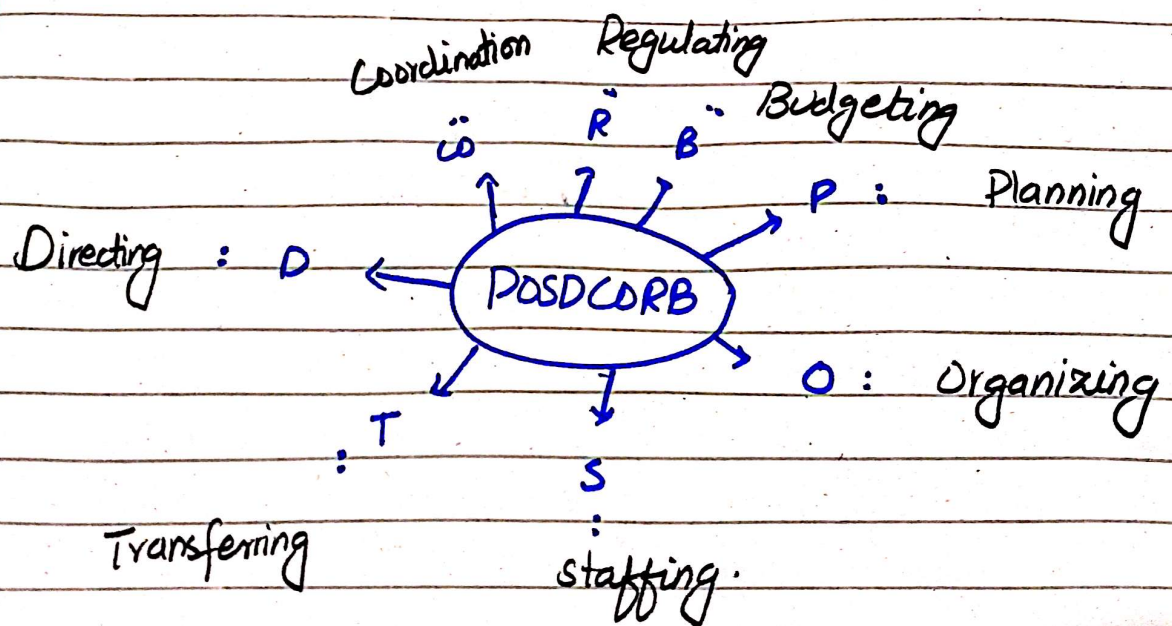 Coordination Regulating
CO : R : B : Budgeting
P : Planning
Directing : D
POSDCORB
O : Organizing
T :
Transferring
S :
staffing.